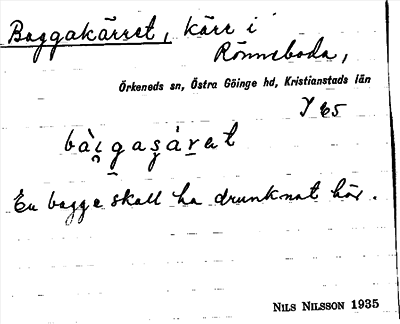 Baggakärret, kärr i
Rönneboda,
Örkeneds sn, Östra Göinge hd, Kristianstads län
En bagge skall ha drunknat här.
NILS NILSSON 1935